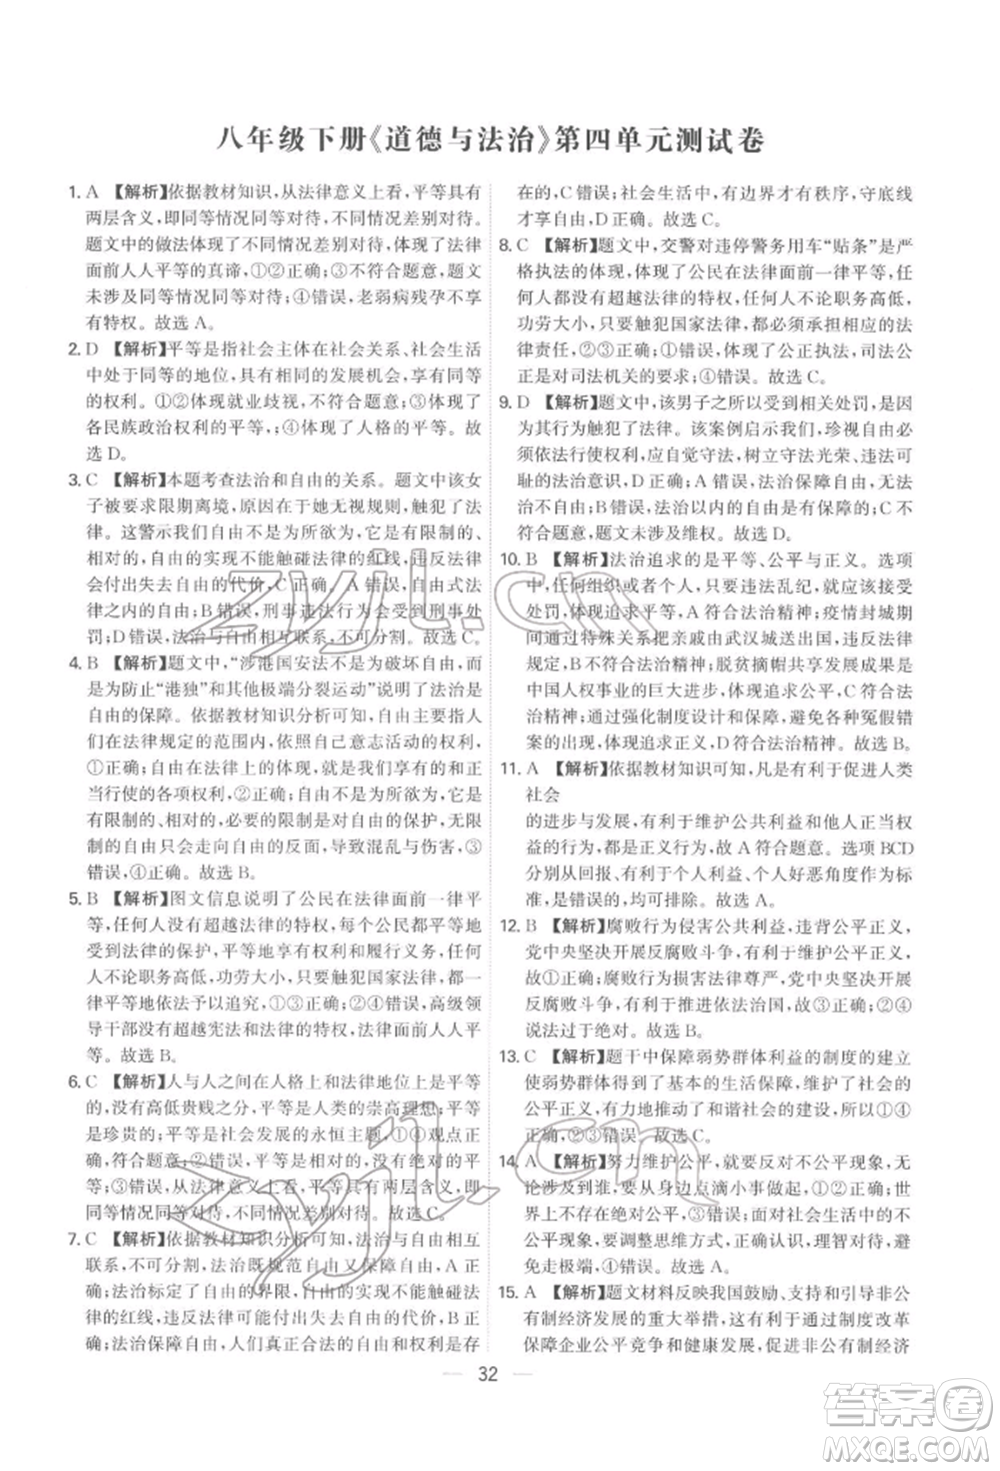 八年级下册《道德与法治》第四单元测试卷
1. A 【解析】依据教材知识,从法律意义上看,平等具有
两层含义,即同等情况同等对待,不同情况差别对待。
题文中的做法体现了不同情况差别对待,体现了法律
面前人人平等的真谛,①②正确;③不符合题意,题文
未涉及同等情况同等对待;④错误,老弱病残孕不具
有特权。故选 A。
2. D 【解析】平等是指社会主体在社会关系、社会生活
中处于同等的地位,具有相同的发展机会,享有同等
的权利。①②体现了就业歧视,不符合题意;③体现了
各民族政治权利的平等,④体现了人格的平等。故
选 D。
3. C 【解析】本题考查法治和自由的关系。题文中该女
子被要求限期离境,原因在于她无视规则,触犯了法
律。这警示我们自由不是为所欲为,它是有限制的、
相对的,自由的实现不能触碰法律的红线,违反法律
会付出失去自由的代价,C 正确;A 错误,自由式法
律之内的自由;B 错误,刑事违法行为会受到刑事处
罚;D 错误,法治与自由相互联系,不可分割。故选 C。
4. B 【解析】题文中,“涉港国安法不是为破坏自由,而
是为防止‘港独’和其他极端分裂运动”说明了法治是
自由的保障。依据教材知识分析可知,法律上自由是人
们在法律规定的范围内,依照自己意志活动的权利,
①正确;自由在法律上的体现,就是我们享有的法律赋予
当行使的各项权利,②正确;自由不是为所欲为,它是
有限制的、相对的,必要的限制是对自由的保护,无限制
的自由只会走向自由的反面,导致混乱与伤害,③
错误,④正确。故选 B。
5. B 【解析】图文信息说明了公民在法律面前一律平
等,任何人没有超越法律的特权,每个公民都平等地
受到法律的保护,平等地享有权利和履行义务,任何
人不论职务高低、功劳大小,只要触犯国家法律,都一
律平等地依法予以追究,①③正确;②④错误,高级领
导干部没有超越宪法和法律的特权,法律面前人人平
等。故选 B。
6. C 【解析】人与人之间在人格上和法律地位上是平等
的,没有高低贵贱之分,平等是人类的崇高理想;平等
没有止境,平等是社会发展的永恒主题,①④观点正
确,符合题意;②错误,平等是具体的、相对的,不是绝对
的;③错误,从法律意义上看,平等具有两层含义,即同
等情况同等对待、不同情况差别对待。故选 C。
7. C 【解析】依据教材知识分析可知,法治与自由相互
联系,不可分割,法治既规范自由又保障自由,A 正
确;法治标定了自由的界限,自由的实现不能触碰法
律的红线,违反法律可能付出失去自由的代价,B 正
确;没有了法治,自由也不存在,人们真正合法的自由和权利是存
在的,C 错误;社会生活中,有边界才有秩序,守底线
才享自由,D 正确。故选 C。
8. C 【解析】题文中,交警对违停警务用车“贴条”是严
格执法的体现,体现了公民在法律面前一律平等,任何人
都没有超越法律的特权,任何人不论职务高低、
功劳大小,只要触犯国家法律,都应当依法承担法
律责任,②③正确;①错误,体现了公正执法,司法公
正是对司法机关的要求;④错误。故选 C。
9. D 【解析】题文中,该男子之所以受到相关处罚,是因
为其行为触犯了法律。该案例启示我们,珍视自由必
须依法行使权利,自觉守法,树立守法光荣、违法可
耻的法治意识,D 正确;A 错误,题文没有涉及自由;B 错误,
没有自由是绝对的,法治以内的自由是有保障的;C 不
符合题意,题文未涉及维权。故选 D。
10. B 【解析】法治追求的是平等、公平与正义。选项
中,任何组织或者个人,只要违法乱纪,就应该受到
处罚,不论是谁,一律平等,A 符合法治精神;疫情封城期
间通过特殊关系把亲戚由武汉城送出,违反法律
规定,B 不符合法治精神;脱贫摘帽C体现的成果是
中国人权事业的巨大进步,体现了公平,C 符合法
治精神;通过强化制度设计和保障,避免各种冤假错
案的出现,体现了正义,D 符合法治精神。故选 B。
11. A 【解析】依据教材知识可知,凡是有利于促进人类
社会
的进步与发展,有利于维护公共利益和他人正当权
益的行为,都是正义行为,故 A 符合题意。选项 BCD
分别从回报、有利于个人利益、善恶角度解读正义,
是错误的,均可排除。故选 A。
12. B 【解析】腐败行为侵害公共利益,违背公平正义,
党中央坚决开展反腐败斗争,有利于维护公平正义,
故①正确;腐败行为损害法律尊严,党中央坚决开展
反腐败斗争,有利于推进依法治国,故③正确;②④
说法过于绝对。故选 B。
13. C 【解析】题干中保障弱势群体利益的制度的建立
使弱势群体得到了基本的生活保障,维护了社会的
公平正义,有利于促进社会和谐与稳定发展,所以①④
正确,②③错误。故选 C。
14. A 【解析】努力维护公平,就要反对不公平现象,无
论涉及谁都要从我做起,从身边点滴小事做起,①②正确;世
界上不存在绝对公平,③错误;面对社会生活中的不
公平现象,要调整思维方式,正确认识,理智对待,避
免走极端,④错误。故选 A。
15. C 【解析】题文材料反映我国鼓励、支持和引导非公
有制经济发展的重大举措,这有利于通过制度改革
保障企业公平竞争和健康发展,促进非公有制经济
32
zyjl.cn
zyjl.cn
答案圈
MXQE.COM